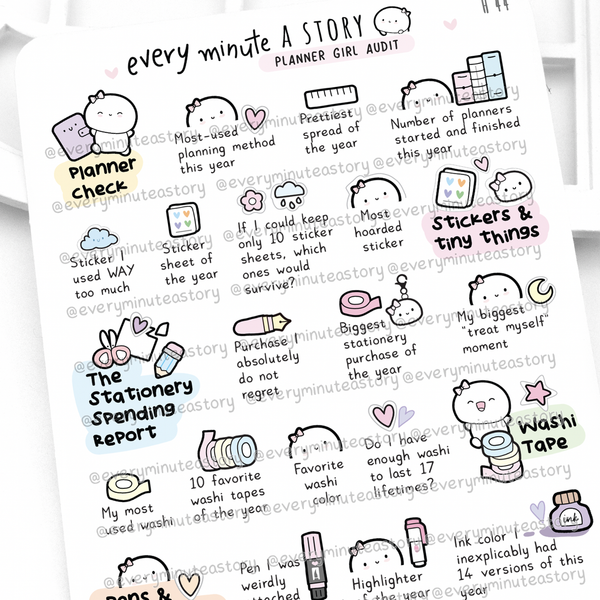 H 44
every minute A STORY
PLANNER GIRL AUDIT
Planner
check
Most-used
planning method
this year
Prettiest
spread of
the year
Number of planners
started and finished
this year
Sticker I
used WAY
too much
Sticker
sheet of
the year
If I could keep
only 10 sticker
sheets, which
ones would
survive?
Most
hoarded
sticker
Stickers &
tiny things
The
Stationery
Spending
Report
Purchase I
absolutely
do not
regret
Biggest
stationery
purchase of
the year
My biggest
"treat myself"
moment
My most
used washi
10 favorite
washi tapes
of the year
Favorite
washi
color
Do I have
enough washi
to last 17
lifetimes?
Washi
Tape
Pens &
Pen I was
weirdly
attached
Highlighter
of the year
Ink color I
inexplicably had
14 versions of this
year
ink
@everyminuteastory